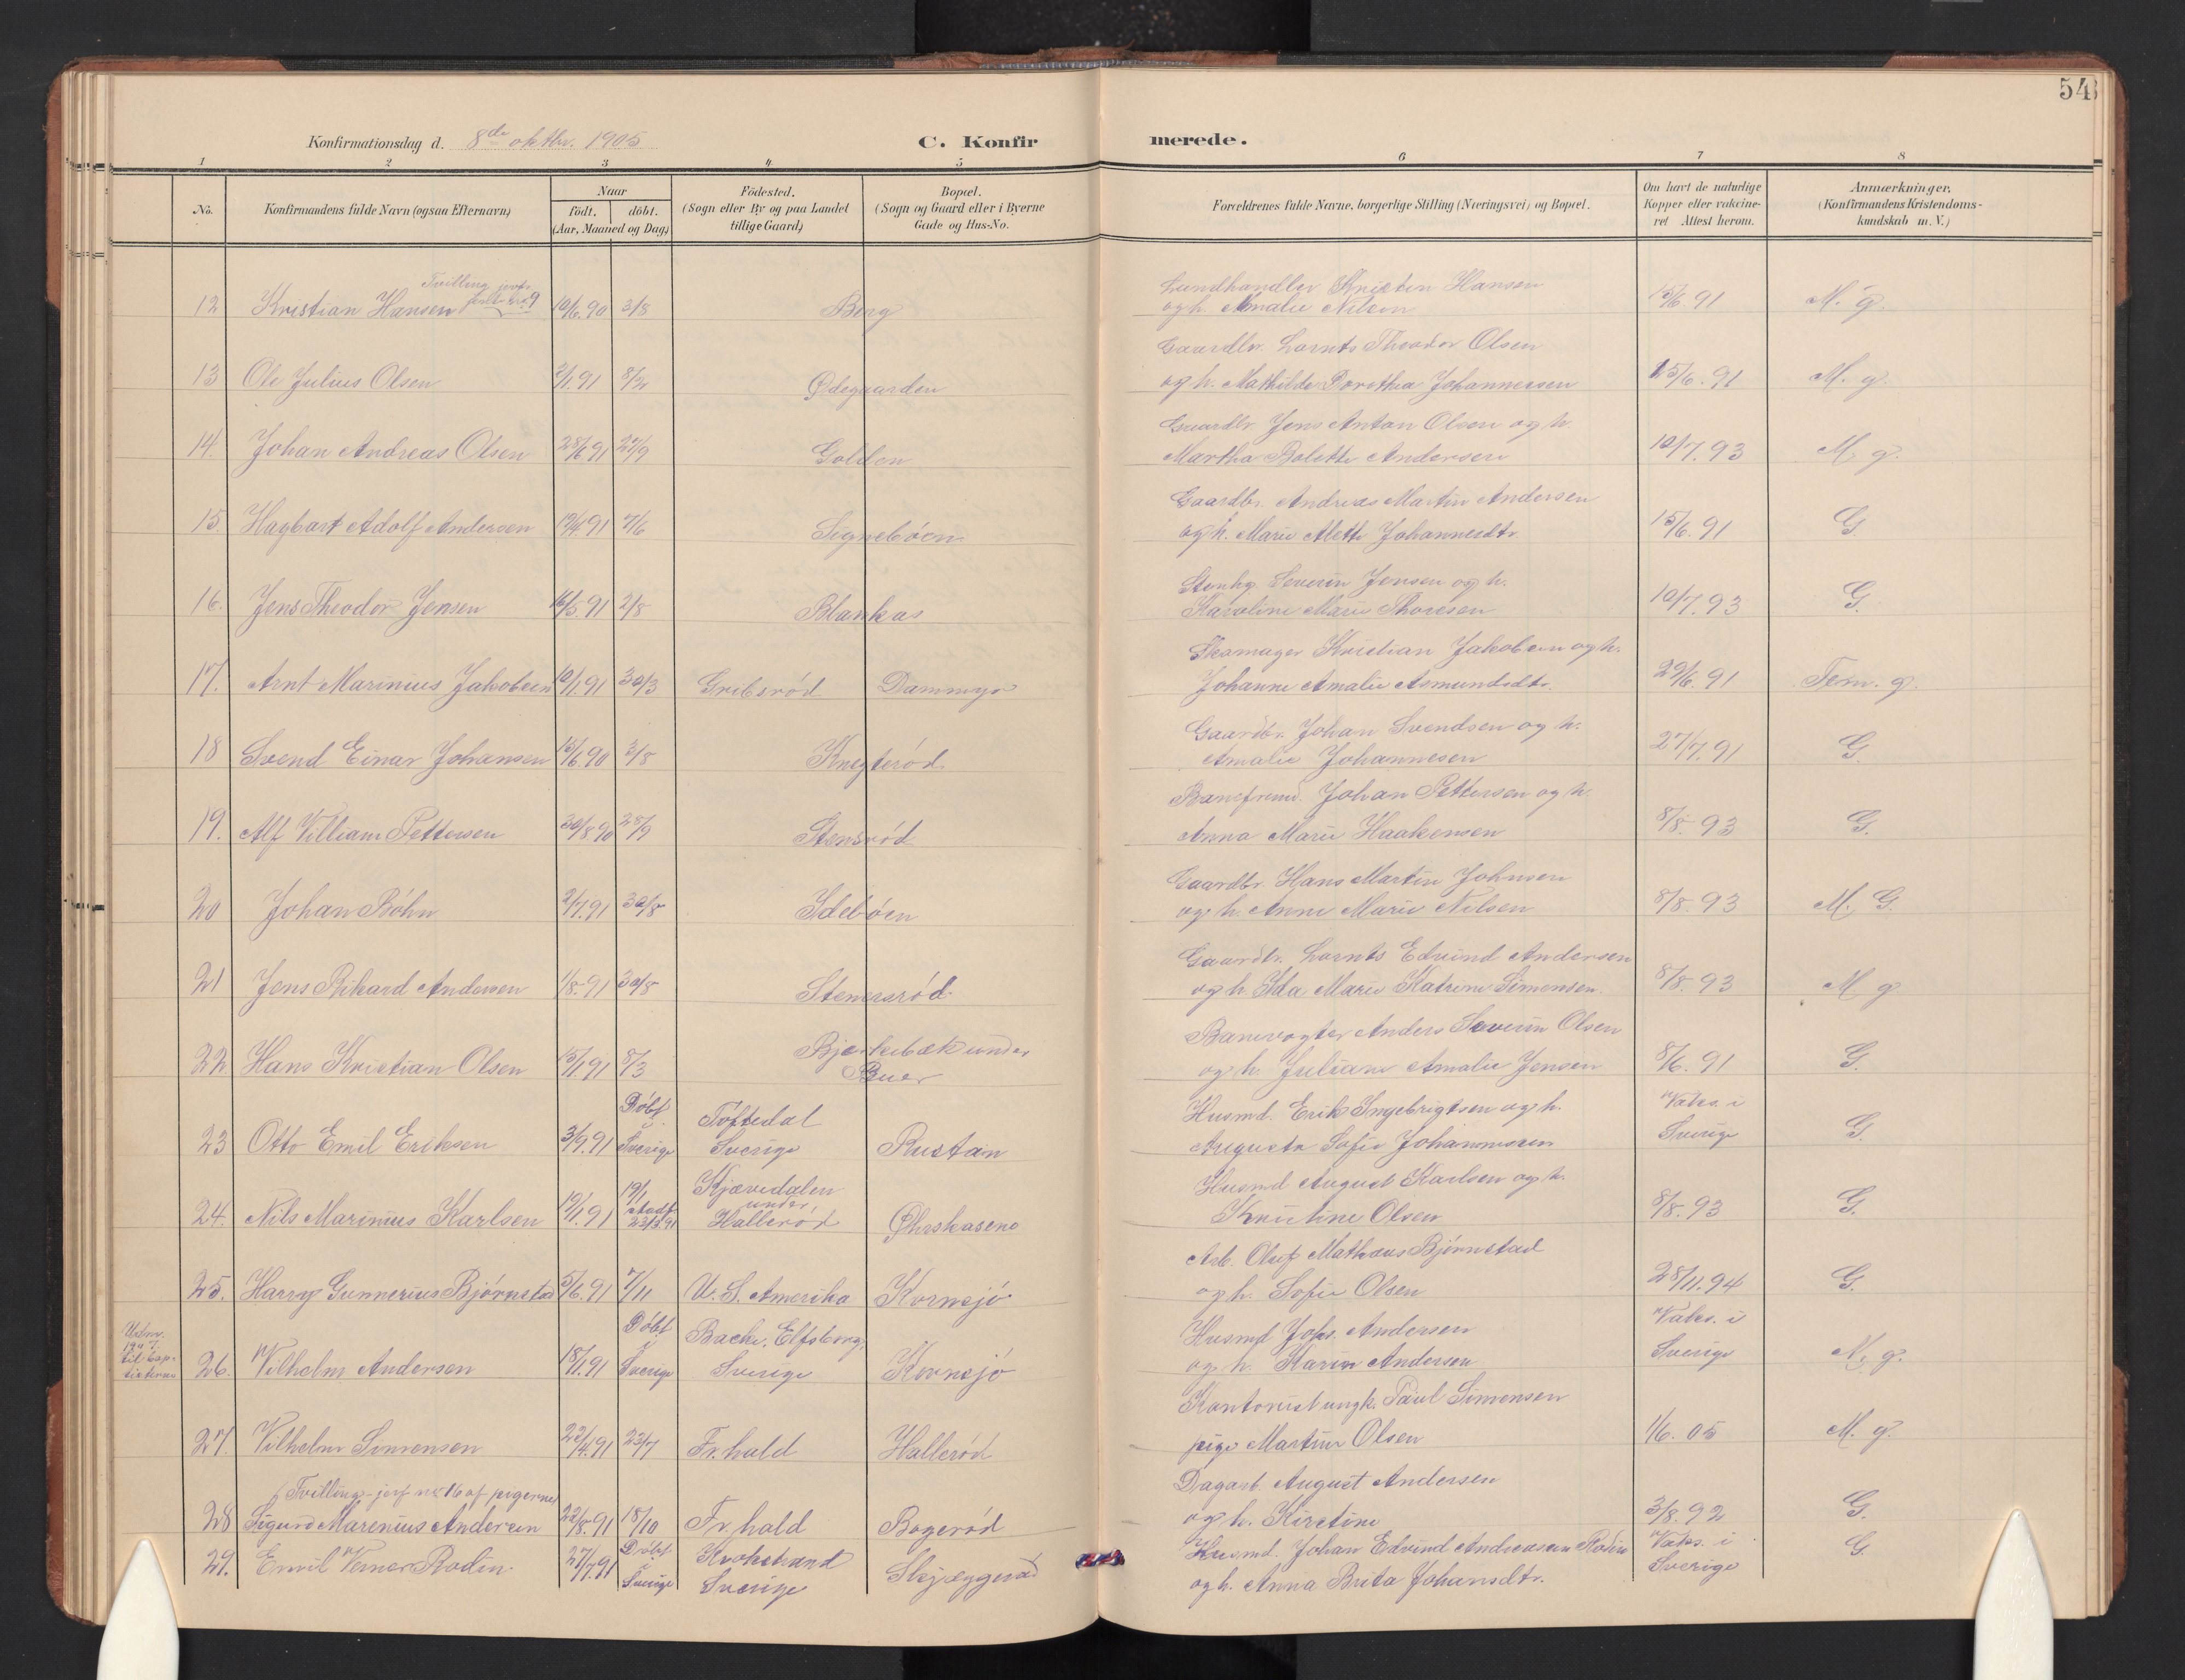 54
Konfirmationsdag d. 8de oktbr. 1905
C. Konfirmerede.
1 2 3 4 5 6 7 8
No.
Konfirmandens fulde Navn (ogsaa Efternavn)
Naar
födt. döbt.
(Aar, Maaned og Dag)
Födested.
(Sogn eller By og paa Landet
tillige Gaard)
Bopæl.
(Sogn og Gaard eller i Byerne
Gade og Hus-No.
Forældrenes fulde Navne, borgerlige Stilling (Næringsvei) og Bopæl.
Om havt de naturlige
Kopper eller vakcine-
ret Attest herom.
Anmærkninger.
(Konfirmandens Kristendoms-
kundskab m. V.)
Tvilling jevf.
Landhandler Kristen Hansen
12 Kristian Hansen 10/6.90 3/8 Berg og h. Amalie Nilsen 15/6 91 M. g.
Gaardbr. Lornts Theodor Olsen
13 Ole Julius Olsen 2/1.91 8/2 Ødegaarden og h. Mathilde Dorthea Johannessen 15/6.91 M. g.
Gaardbr. Jens Anton Olsen og h.
14. Johan Andreas Olsen 28/6 91 27/9 Golden Martha Bolette Andersen 10/7.93 M. g.
Gaardbr. Andreas Martin Andersen
15. Hagbart Adolf Andersen 19/4 91 7/6 Signebøen og h. Marie Alette Johannesdtr. 15/6.91 G.
Stenhg. Severin Jensen og h.
16. Jens Theodor Jensen 16/5.91 2/8 Blankas Karoline Marie Thoresen 10/7.93 G.
Skomager Kristian Jakobsen og h.
17. Arnt Marinius Jakobsen 10/1.91 30/3 Gribsrød Dammyr Johanne Amalie Asmundsdtr. 29/6.91 Tem. g.
Gaardbr. Johan Svendsen og h.
18 Svend Einar Johansen 15/6.90 3/8 Knegterød Amalie Johannesen 27/7.91 G.
Johan Pettersen og h.
19. Alf Villiam Pettersen 30/8 90 28/9 Stensrød Anna Marie Haakensen 8/8.93 G.
Gaardbr. Hans Martin Johnsen
20 Johan Bøhn 2/7.91 30/8 Idebøen og h. Anne Marie Nilsen 8/8.93 M. G.
Gaardbr. Lornts Edvind Andersen
21 Jens Rikard Andersen 1/8.91 30/8 Stenersrød og h. Ida Marie Katrine Simensen. 8/8.93 M. g
Bjerkebæk under Banevogter Anders Severin Olsen
22. Hans Kristian Olsen 15/1.91 8/3 Buer og h. Juliane Amalie Jensen 8/6.91 G.
Döbt i Töftedal Husmd. Erik Ingebrigtsen og h. Vaks. i
23 Otto Emil Eriksen 3/9.91 Sverige Sverige Rustan Augusta Sofie Johannessen Sverige G.
19/1 Kjævedalen under Husmd. August Karlsen og h.
24. Nils Marinius Karlsen 19/1 91 stadf. 23/3 91 Hallerød Øhrskasene Kristine Olsen 8/8.93 G.
Arb. Oluf Mathæus Bjørnstad
25. Harry Gunnerius Bjørnstad 5/6.91 7/11 U. S. Amerika Kornsjø og h. Sofie Olsen 28/11.94 G.
Udm.
1907
til bap-
tisterne
Döbt i Backe, Elfsborg, Husmd Johs. Andersen Vaks. i
26. Vilhelm Andersen 18/1.91 Sverige Sverige Kornsjø og h. Karin Andersen Sverige N. g.
Kontorist ungk. Paul Simensen
27. Vilhelm Simensen 22/4.91 23/7 Fr.hald Hallerød pige Martine Olsen 1/6.05 M. g.
(Tvilling-jevf nr 16 af pigerne) Dagarb. August Andersen
28 Sigurd Marenius Andersen 22/8.91 18/10 Fr.hald Bogerød og h. Kirstine 3/8.92 G.
Döbt i Krokstrand Husmd. Johan Edvind Andreassen Rodin Vaks. i
29. Emil Verner Rodin 27/7.91 Sverige Sverige Skjæggerød og h. Anna Brita Johansdtr. Sverige G.